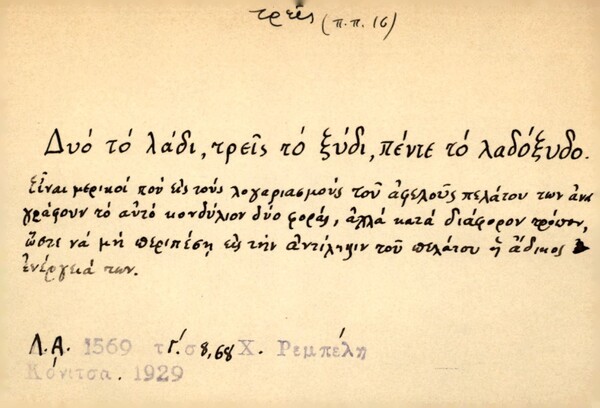 τρεῖς (π.π. 16)
Δυό τό λάδι, τρεῖς τό ξύδι, πέντε τό λαδόξυδο.
Εἶναι μερικοί πού εἰς τούς λογαριασμούς τοῦ ἀφελοῦς πελάτου των ἀνα
γράφουν τό αὐτό κονδύλιον δύο φοράς, ἀλλά κατά διάφορον τρόπον,
ὥστε νά μή περιπέσῃ εἰς τήν ἀντίληψιν τοῦ πελάτου ἡ ἄδικος
ἐνέργειά των.
Λ.Α. 1569 τ. Γ΄. σ 8,68 Χ. Ρεμπέλη
Κόνιτσα. 1929